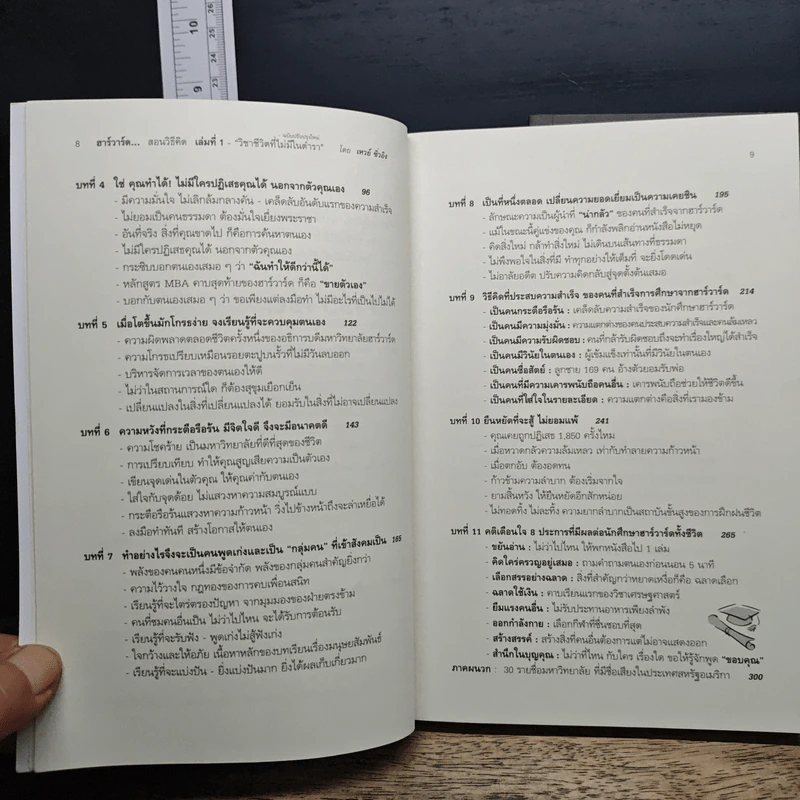 10
9
26
25
24
23
ฉบับปรับปรุงใหม่
8 ฮาร์วาร์ด... สอนวิธีคิด เล่มที่ 1 - "วิชาชีวิตที่ไม่มีในตำรา" โดย เหวย์ ซิ่วอิง
บทที่ 4 ใช่ คุณทำได้! ไม่มีใครปฏิเสธคุณได้ นอกจากตัวคุณเอง 96
- มีความมั่นใจ ไม่เลิกล้มกลางคัน - เคล็ดลับอันดับแรกของความสำเร็จ
- ไม่ยอมเป็นคนธรรมดา ต้องมั่นใจเยี่ยงพระราชา
- อันที่จริง สิ่งที่คุณขาดไป ก็คือการค้นหาตนเอง
- ไม่มีใครปฏิเสธคุณได้ นอกจากตัวคุณเอง
- กระซิบบอกตนเองเสมอ ๆ ว่า "ฉันทำให้ดีกว่านี้ได้"
- หลักสูตร MBA คาบสุดท้ายของฮาร์วาร์ด ก็คือ "ขายตัวเอง"
- บอกกับตนเองเสมอ ๆ ว่า ขอเพียงแต่ลงมือทำ ไม่มีอะไรที่เป็นไปไม่ได้
บทที่ 5 เมื่อโตขึ้นมักโกรธง่าย จงเรียนรู้ที่จะควบคุมตนเอง 122
- ความผิดพลาดตลอดชีวิตครั้งหนึ่งของอธิการบดีมหาวิทยาลัยฮาร์วาร์ด
- ความโกรธเปรียบเหมือนรอยตะปูบนรั้วที่ไม่มีวันลบออก
- บริหารจัดการเวลาของตนเองให้ดี
- ไม่ว่าในสถานการณ์ใด ก็ต้องสุขุมเยือกเย็น
- เปลี่ยนแปลงในสิ่งที่เปลี่ยนแปลงได้ ยอมรับในสิ่งที่ไม่อาจเปลี่ยนแปลง
บทที่ 6 ความหวังที่กระตือรือร้น มีจิตใจดี จึงจะมีอนาคตดี 143
- ความโชคร้าย เป็นมหาวิทยาลัยที่ดีที่สุดของชีวิต
- การเปรียบเทียบ ทำให้คุณสูญเสียความเป็นตัวเอง
- เขียนจุดเด่นในตัวคุณ ให้คุณค่ากับตนเอง
- ใส่ใจกับจุดด้อย ไม่แสวงหาความสมบูรณ์แบบ
- กระตือรือร้นแสวงหาความก้าวหน้า วิ่งไปข้างหน้าถึงจะล่าเหยื่อได้
- ลงมือทำทันที สร้างโอกาสให้ตนเอง
บทที่ 7 ทำอย่างไรจึงจะเป็นคนพูดเก่งและเป็น "กลุ่มคน" ที่เข้าสังคมเป็น 165
- พลังของคนคนหนึ่งมีข้อจำกัด พลังของกลุ่มคนสำคัญยิ่งกว่า
- ความไว้วางใจ กฎทองของการคบเพื่อนสนิท
- เรียนรู้ที่จะไตร่ตรองปัญหา จากมุมมองของฝ่ายตรงข้าม
- คนที่ชมคนอื่นเป็น ไม่ว่าไปไหน จะได้รับการต้อนรับ
- เรียนรู้ที่จะรับฟัง - พูดเก่งไม่สู้ฟังเก่ง
- ใจกว้างและให้อภัย เนื้อหาหลักของบทเรียนเรื่องมนุษยสัมพันธ์
- เรียนรู้ที่จะแบ่งปัน - ยิ่งแบ่งปันมาก ยิ่งได้ผลเก็บเกี่ยวมาก
9
บทที่ 8 เป็นที่หนึ่งตลอด เปลี่ยนความยอดเยี่ยมเป็นความเคยชิน 195
- ลักษณะความเป็นผู้นำที่ "น่ากลัว" ของคนที่สำเร็จจากฮาร์วาร์ด
- แม้ในขณะนี้คู่แข่งของคุณ ก็กำลังพลิกอ่านหนังสือไม่หยุด
- คิดสิ่งใหม่ กล้าทำสิ่งใหม่ ไม่เดินบนเส้นทางที่ธรรมดา
- ไม่พึงพอใจในสิ่งที่มี ทำทุกอย่างให้เต็มที่ จะยิ่งโดดเด่น
- ไม่อาลัยอดีต ปรับความคิดกลับสู่จุดตั้งต้นเสมอ
บทที่ 9 วิธีคิดที่ประสบความสำเร็จ ของคนที่สำเร็จการศึกษาจากฮาร์วาร์ด 214
- เป็นคนกระตือรือร้น : เคล็ดลับความสำเร็จของนักศึกษาฮาร์วาร์ด
- เป็นคนมีความมุ่งมั่น : ความแตกต่างของคนประสบความสำเร็จและคนล้มเหลว
- เป็นคนมีความรับผิดชอบ : คนที่กล้ารับผิดชอบถึงจะทำเรื่องใหญ่ได้สำเร็จ
- เป็นคนมีวินัยในตนเอง : ผู้เข้มแข็งเท่านั้นที่มีวินัยในตนเอง
- เป็นคนซื่อสัตย์ : ลูกชาย 169 คน อ้างตัวยอมรับพ่อ
- เป็นคนที่มีความเคารพนับถือคนอื่น : เคารพนับถือช่วยให้ชีวิตดีขึ้น
- เป็นคนที่ใส่ใจในรายละเอียด : ความแตกต่างคือสิ่งที่เรามองข้าม
บทที่ 10 ยืนหยัดที่จะสู้ ไม่ยอมแพ้ 241
- คุณเคยถูกปฏิเสธ 1,850 ครั้งไหม
- เมื่อหวาดกลัวความล้มเหลว เท่ากับทำลายความก้าวหน้า
- เมื่อตกอับ ต้องอดทน
- ก้าวข้ามความลำบาก ต้องเริ่มจากใจ
- ยามสิ้นหวัง ให้ยืนหยัดอีกสักหน่อย
- ไม่ทอดทิ้ง ไม่ละทิ้ง ความยากลำบากเป็นสถาบันชั้นสูงของการฝึกฝนชีวิต
บทที่ 11 คติเตือนใจ 8 ประการที่มีผลต่อนักศึกษาฮาร์วาร์ดทั้งชีวิต 265
- ขยันอ่าน : ไม่ว่าไปไหน ให้พกหนังสือไป 1 เล่ม
- คิดใคร่ครวญอยู่เสมอ : ถามคำถามตนเองก่อนนอน 5 นาที
- เลือกสรรอย่างฉลาด : สิ่งที่สำคัญกว่าหยาดเหงื่อก็คือ ฉลาดเลือก
- ฉลาดใช้เงิน : คาบเรียนแรกของวิชาเศรษฐศาสตร์
- ยืมแรงคนอื่น : ไม่รับประทานอาหารเพียงลำพัง
- ออกกำลังกาย : เลือกกีฬาที่ชื่นชอบที่สุด
- สร้างสรรค์ : สร้างสิ่งที่คนอื่นต้องการแต่ไม่อาจแสดงออก
- สำนึกในบุญคุณ : ไม่ว่าที่ไหน กับใคร เรื่องใด ขอให้รู้จักพูด "ขอบคุณ"
ภาคผนวก : 30 รายชื่อมหาวิทยาลัย ที่มีชื่อเสียงในประเทศสหรัฐอเมริกา 300